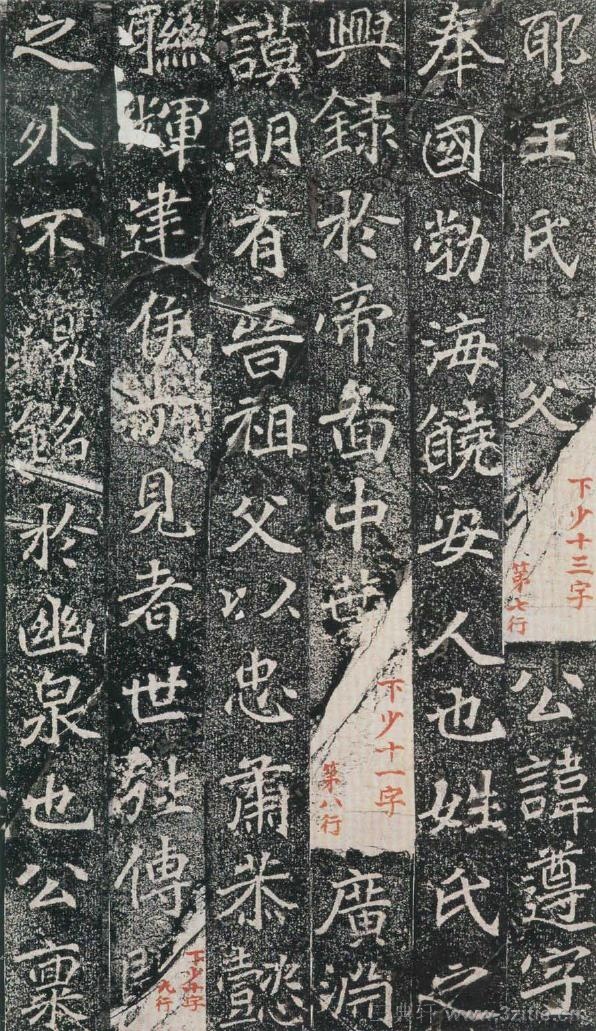 耶王氏 父
下少十三字
第七行
公諱遵字
奉國勃海饒安人也姓氏之
興錄於帝啚中葉
下少十一字
第八行
廣淵
謨明有晉祖父以忠肅恭懿
聯輝建侯見者世傳
下少十字
九行
之外不復銘於幽泉也公稟
www.3zitie.cn